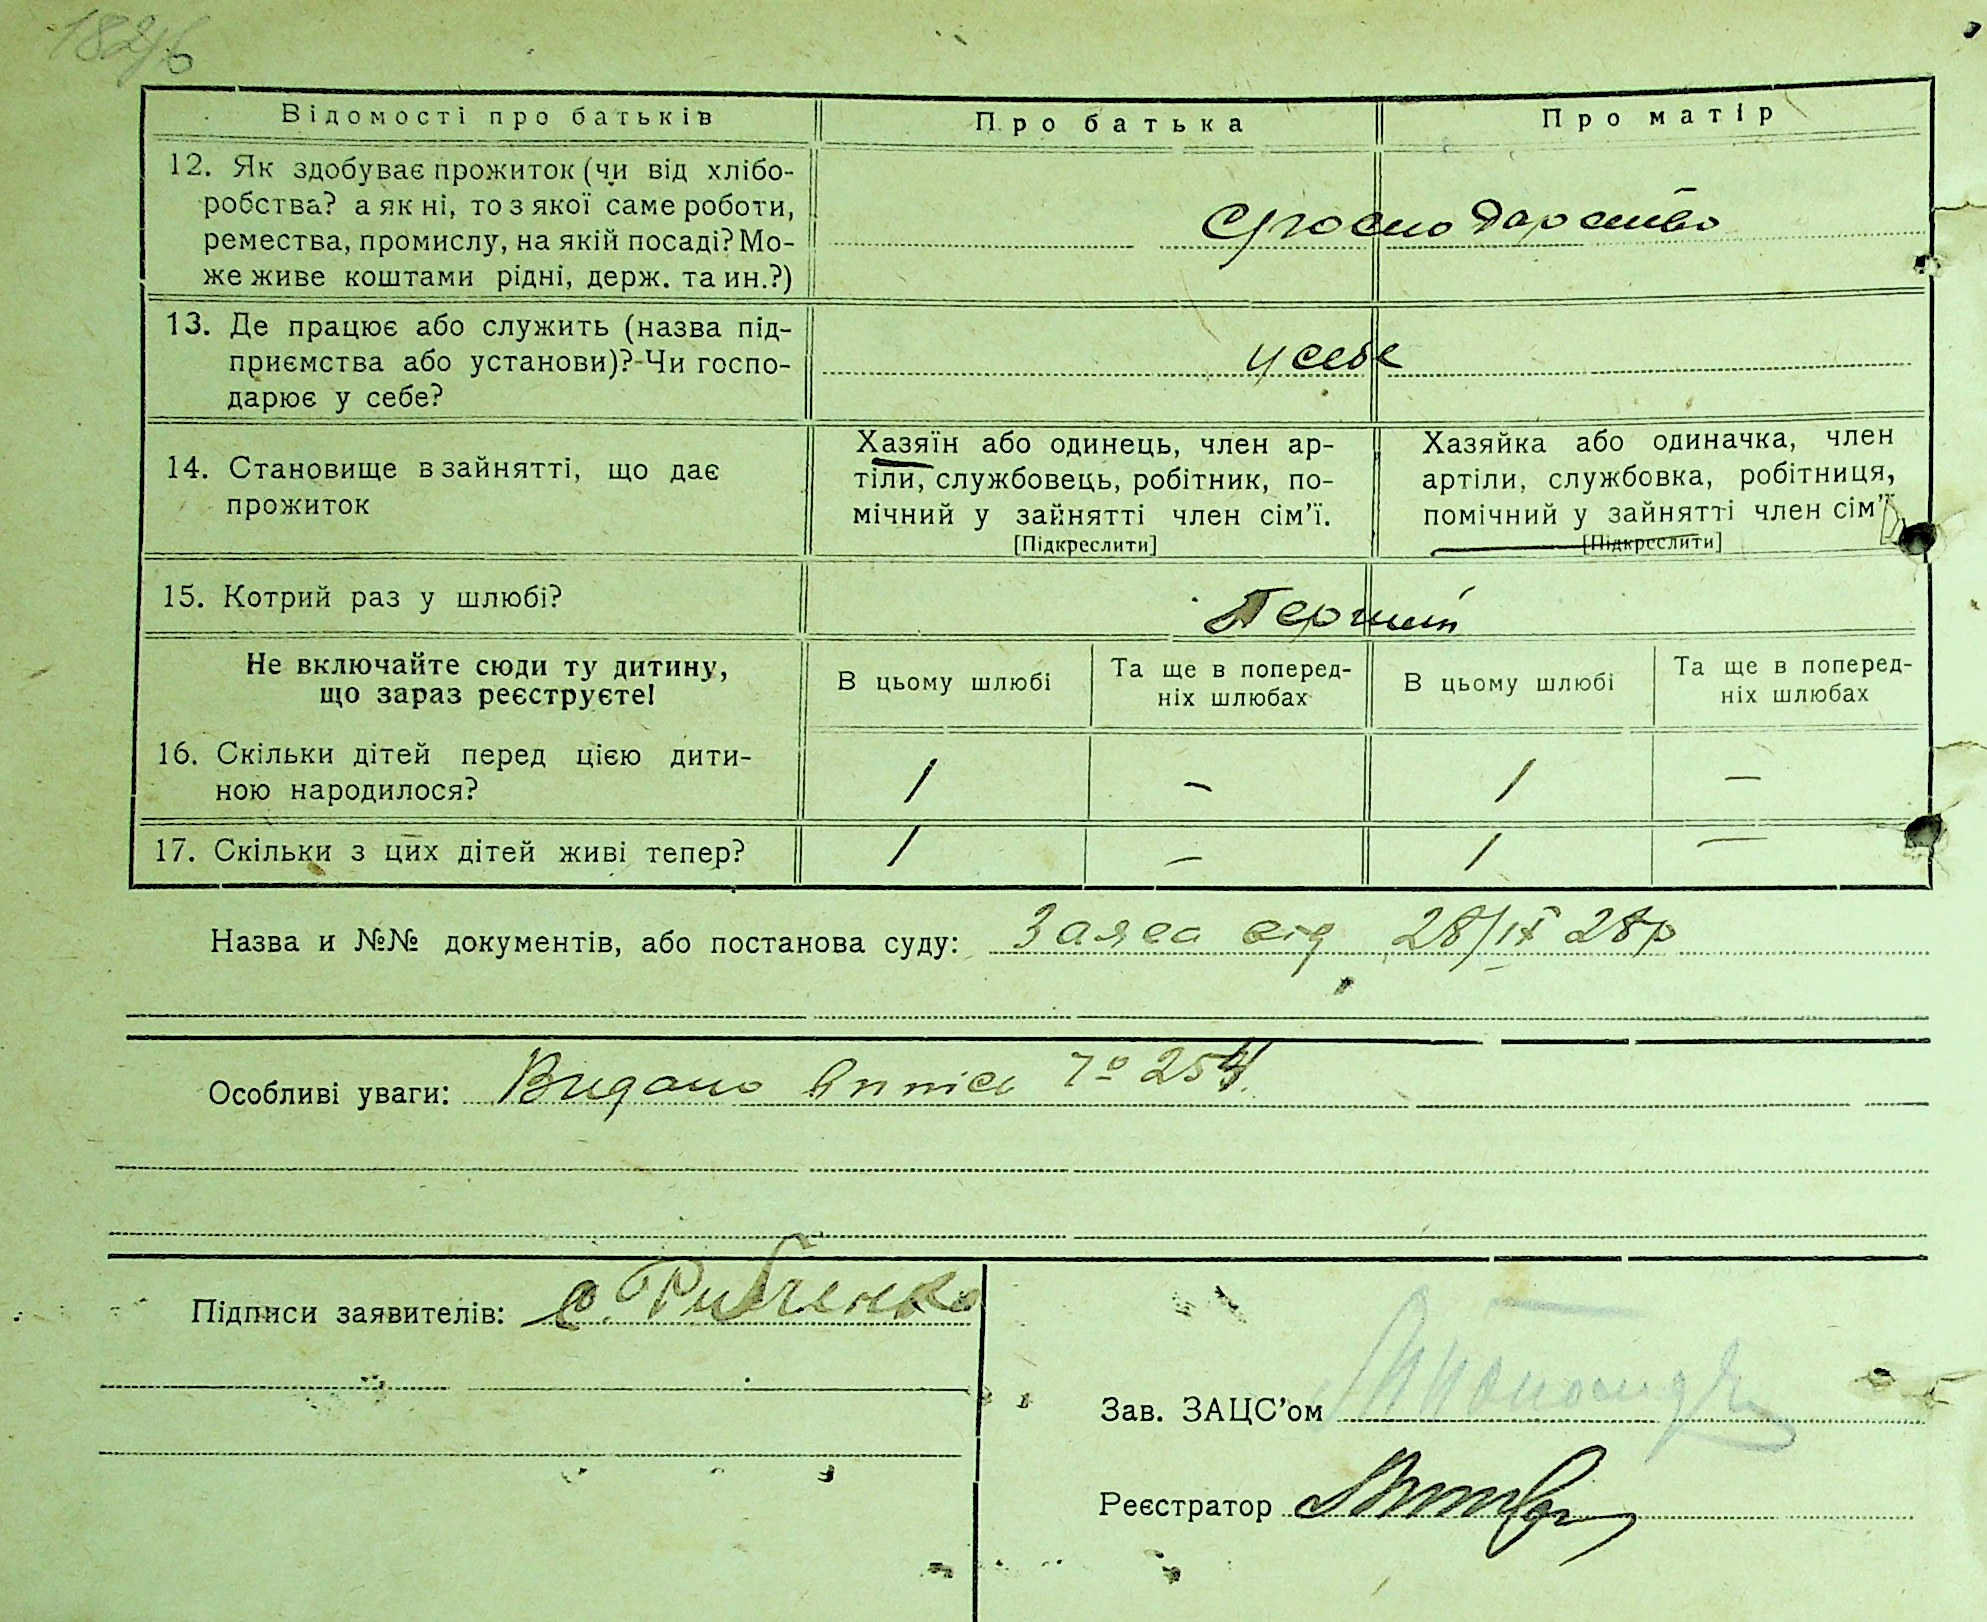 1826
Відомості про батьків
Про батька
Про матір
12. Як здобуває прожиток (чи від хлібо-
робства? а як ні, то з якої саме роботи,
ремества, промислу, на якій посаді? Мо-
же живе коштами рідні, держ. та ин.?)
13. Де працює або служить (назва під-
приємства або установи)? Чи госпо-
дарює у себе?
у себе
14. Становище в зайнятті, що дає
прожиток
Хазяїн або одинець, член ар-
тіли, службовець, робітник, по-
мічний у зайнятті член сім'ї.
[Підкреслити]
Хазяйка або одиначка, член
артіли, службовка, робітниця,
помічний у зайнятті член сім'ї
[Підкреслити]
15. Котрий раз у шлюбі?
Перший
Не включайте сюди ту дитину,
що зараз реєструєте!
В цьому шлюбі
Та ще в поперед-
ніх шлюбах
В цьому шлюбі
Та ще в поперед-
ніх шлюбах
16. Скільки дітей перед цією дити-
ною народилося?
1 – 1 –
17. Скільки з цих дітей живі тепер?
1 – 1 –
Назва и №№ документів, або постанова суду: Заява від 28/IX 28р
Особливі уваги: Видано випись № 254
Підписи заявителів: С. Рибченко
Зав. ЗАЦС'ом
Реєстратор